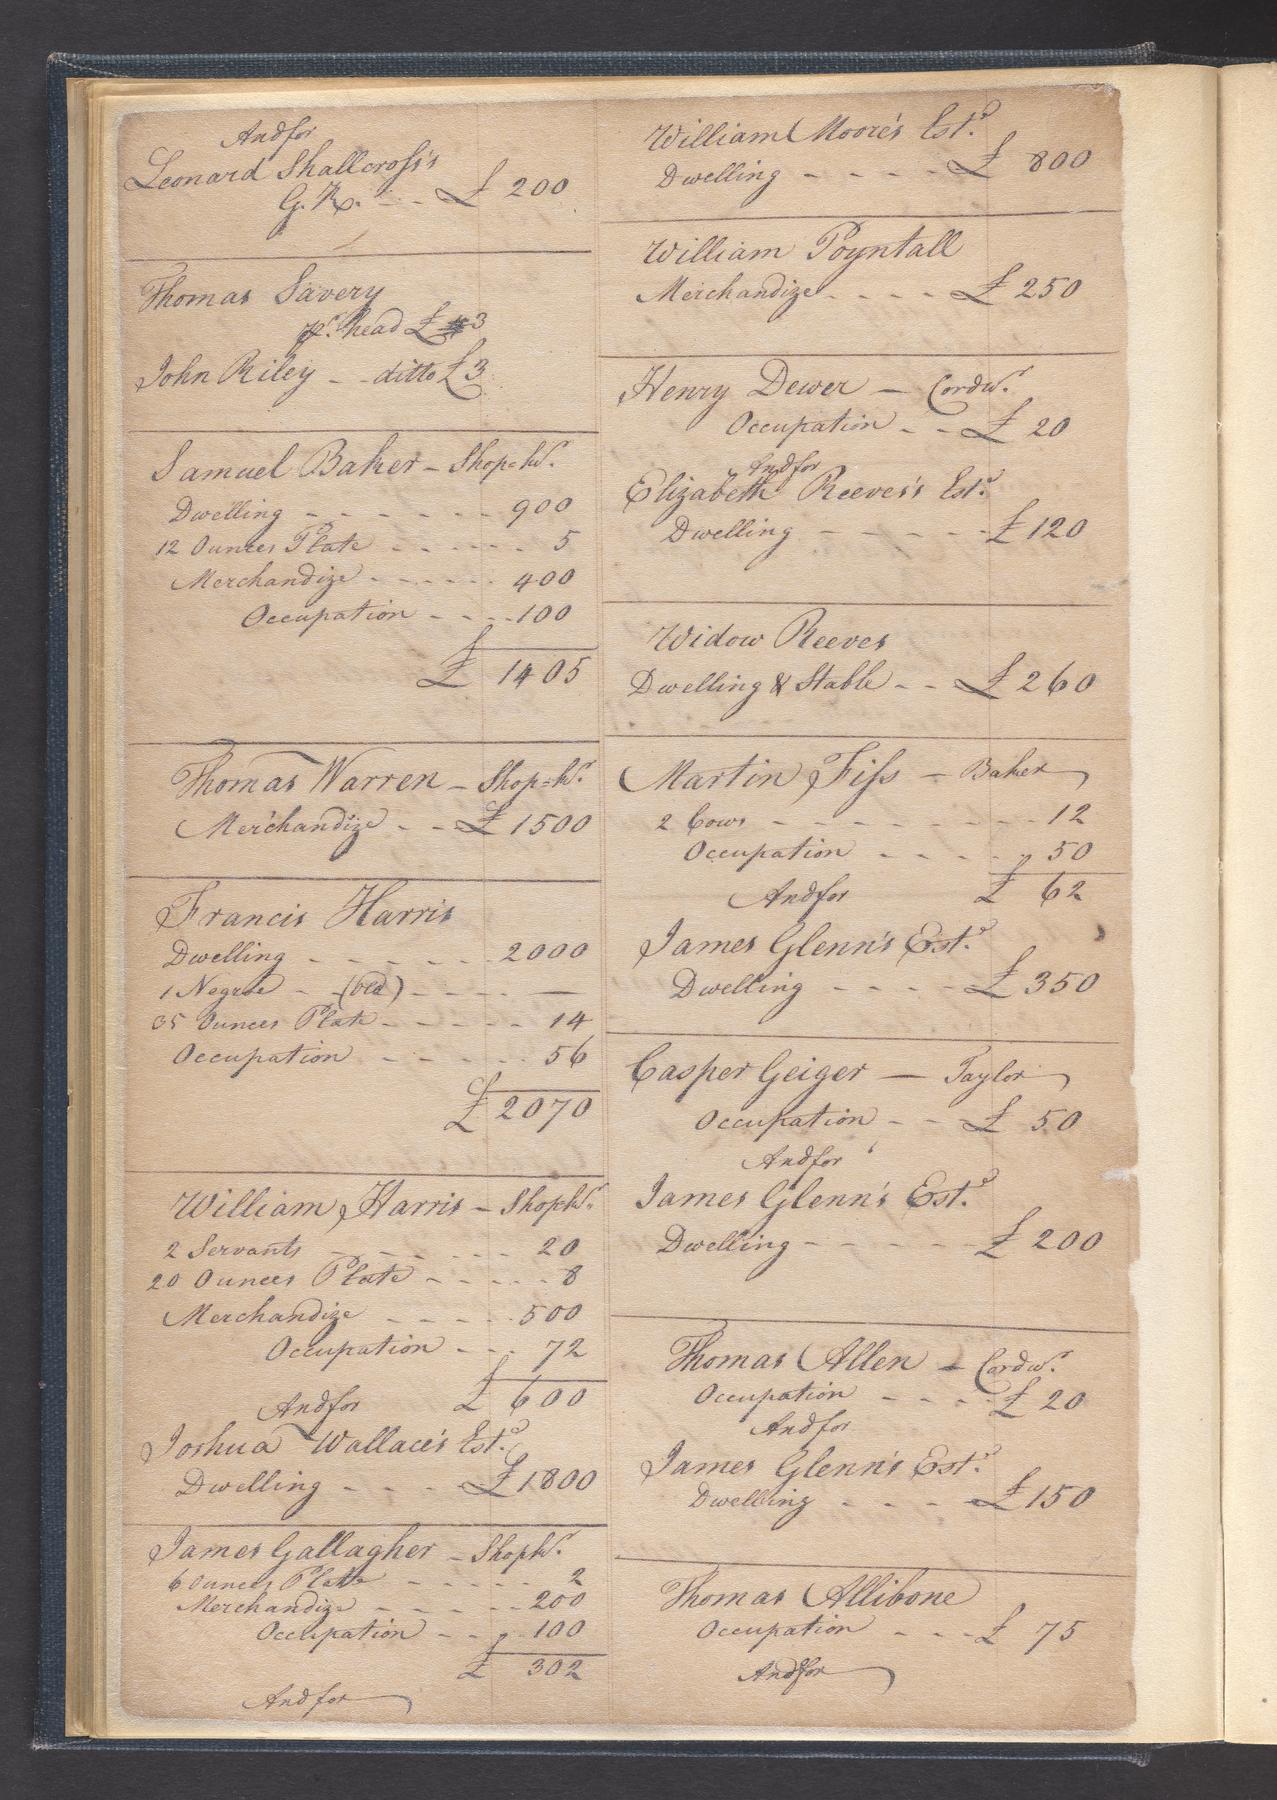 Andfor
Leonard Shallcross's
G. R. - - £ 200
Thomas Savery
pr. head £ 3
John Riley - - ditto £3
Samuel Baker - Shop=kr.
Dwelling - - - - - - - 900
12 Ounces Plate - - - - - - 5
Merchandize - - - - - - 400
Occupation - - - - 100
£ 1405
Thomas Warren - Shop=kr.
Merchandize - - - £ 1500
Francis Harris
Dwelling - - - - - - 2000
1 Negroe - (Old) - - - - —
35 Ounces Plate - - - - - 14
Occupation - - - - - 56
£ 2070
William Harris - Shopkr.
2 Servants - - - - - - 20
20 Ounces Plate - - - - - 8
Merchandize - - - - - 500
Occupation - - - 72
£ 600
Andfor
Joshua Wallace's Estd.
Dwelling - - - - £1800
James Gallagher - Shopkr.
6 Ounces Plate - - - - - 2
Merchandize - - - - - - 200
Occupation - - - 100
£ 302
Andfor
William Moore's Estd.
Dwelling - - - - - £ 800
William Poyntall
Merchandize - - - - £ 250
Henry Dewer — Cordwr.
Occupation - - £ 20
Andfor
Elizabeth Reeves's Estd.
Dwelling - - - - - £ 120
Widow Reeves
Dwelling & Stable - - £ 260
Martin Fiss - Baker
2 Cows - - - - - - - - - 12
Occupation - - - - - 50
Andfor £ 62
James Glenn's Estd.
Dwelling - - - - - £ 350
Casper Geiger — Taylor
Occupation - - - £ 50
Andfor
James Glenn's Estd.
Dwelling - - - - - - £ 200
Thomas Allen - Cordwr.
Occupation - - - - £ 20
Andfor
James Glenn's Estd.
Dwelling - - - - £150
Thomas Allibone
Occupation - - - £ 75
Andfor